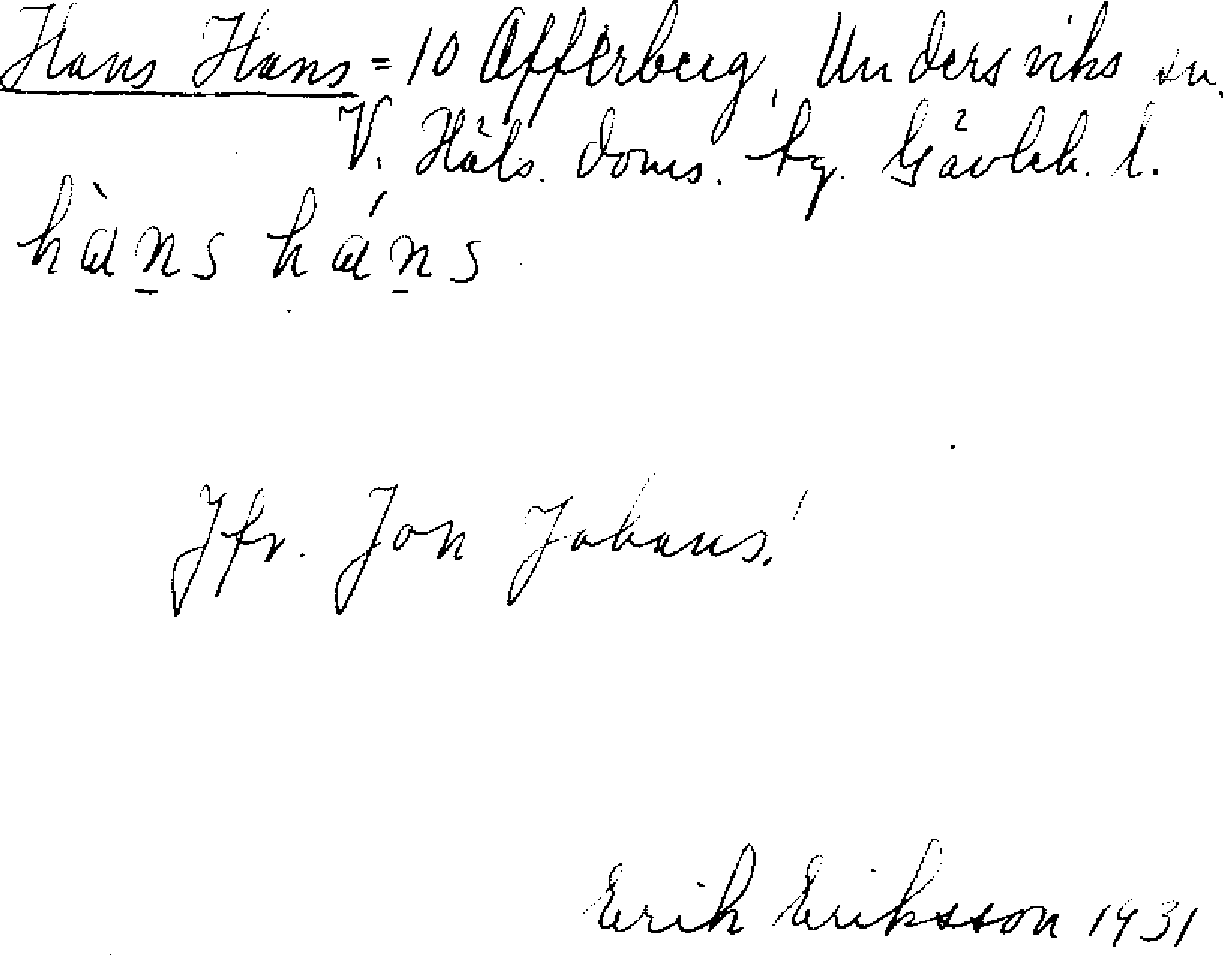 Hans Hans = 10 Offerberg, Undersviks sn.
V. Häls. doms. tg. Gävleb. l.
hàns háns
Jfr. Jon Johans!
Erik Eriksson 1931